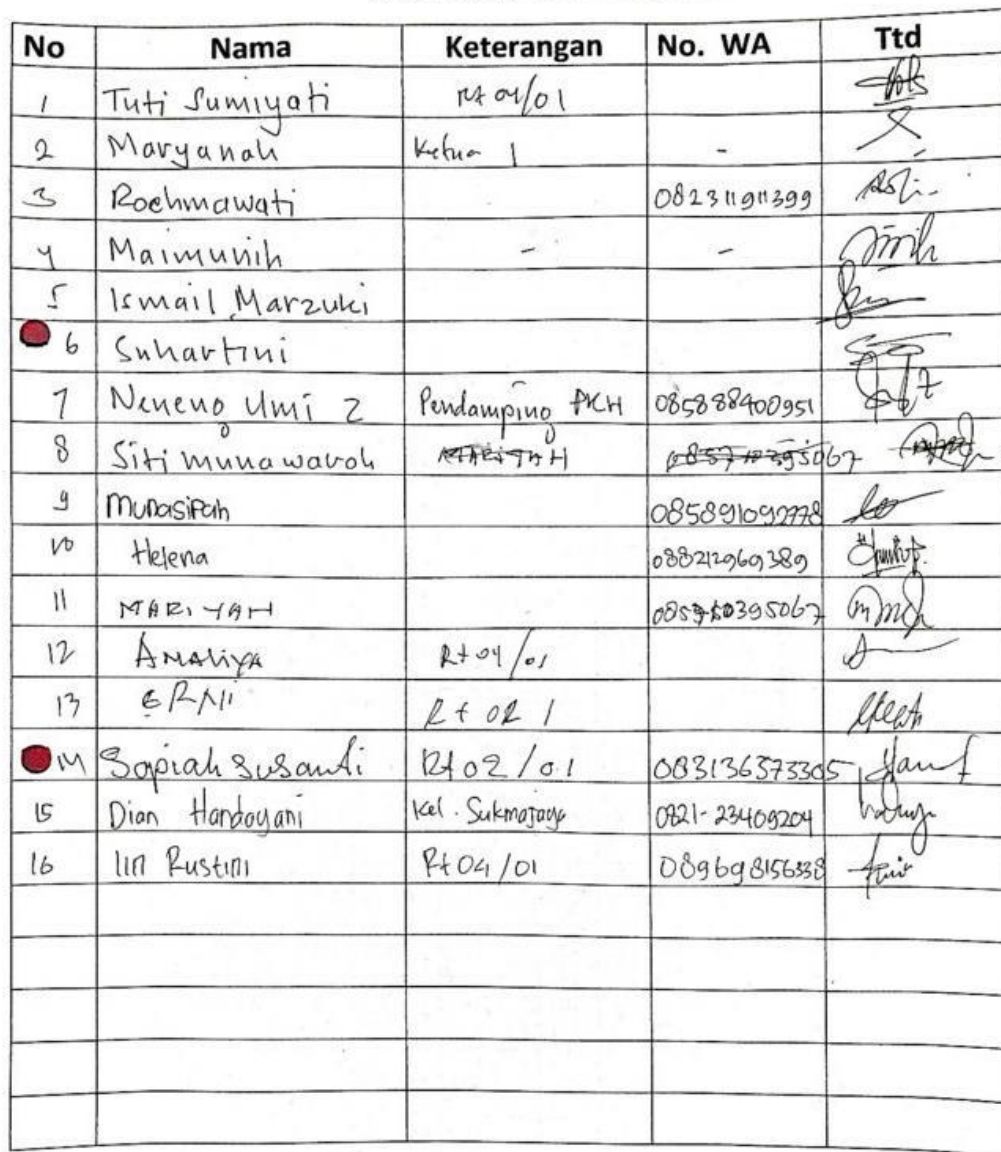 No Nama Keterangan No. WA Ttd
1 Tuti Sumiyati Rt 04/01
2 Maryanah Ketua 1 -
3 Rochmawati 082311911399
4 Maimunih - -
5 Ismail Marzuki
6 Suhartini
7 Neneng Umi Z Pendamping PKH 085888400951
8 Siti munawaroh MARIYAH
9 Munasipah 085891092778
10 Helena 088212969389
11 MARIYAH
12 AMALIYA Rt 04/01
13 ERNI Rt 02 1
14 Sopiah Susanti Rt 02/01 083136373305
15 Dian Handayani Kel. Sukmajaya 0821-23409204
16 Iin Rustini Rt 04/01 089698156338